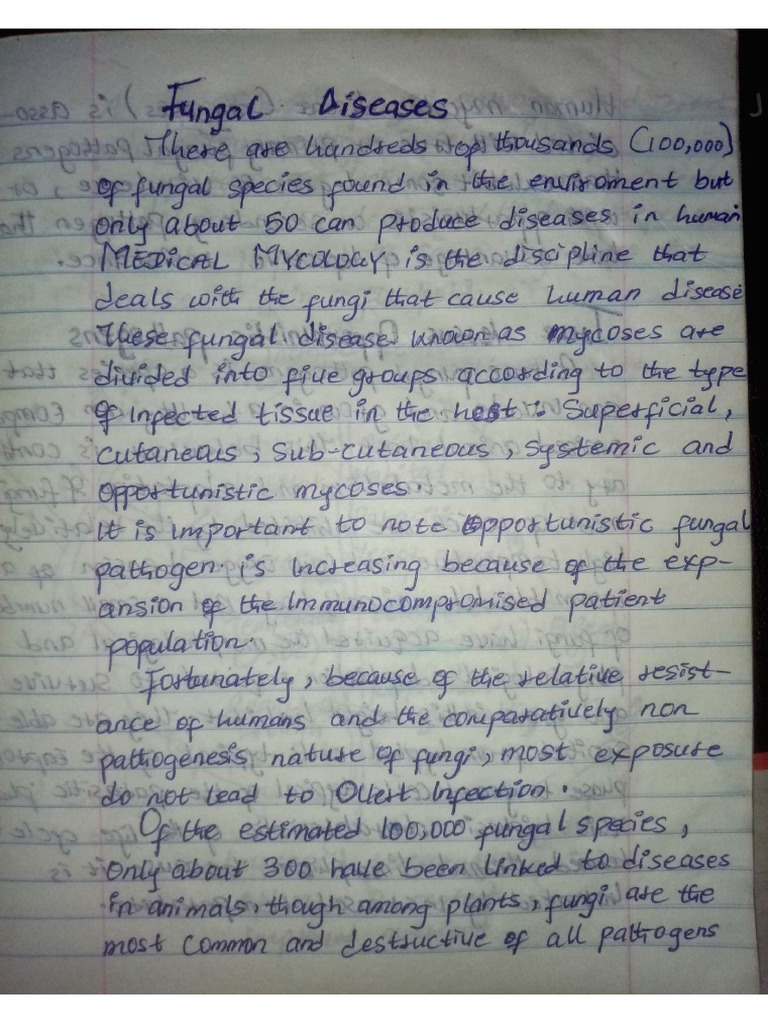 Fungal Diseases
There are hundreds of thousands (100,000)
of fungal species found in the enviroment but
only about 50 can produce diseases in human
MEDICAL MYCOLOGY is the discipline that
deals with the fungi that cause human disease
These fungal disease known as mycoses are
divided into five groups according to the type
of infected tissue in the host: Superficial,
cutaneous, Sub-cutaneous, Systemic and
opportunistic mycoses.
It is important to note opportunistic fungal
pathogen. is increasing because of the exp-
ansion of the Immunocompromised patient
population.
Fortunately, because of the relative resist-
ance of humans and the comparatively non
pathogenesis nature of fungi, most exposure
do not lead to Overt Infection.
Of the estimated 100,000 fungal species,
Only about 300 have been linked to diseases
in animals, though among plants, fungi are the
most common and destructive of all pathogens